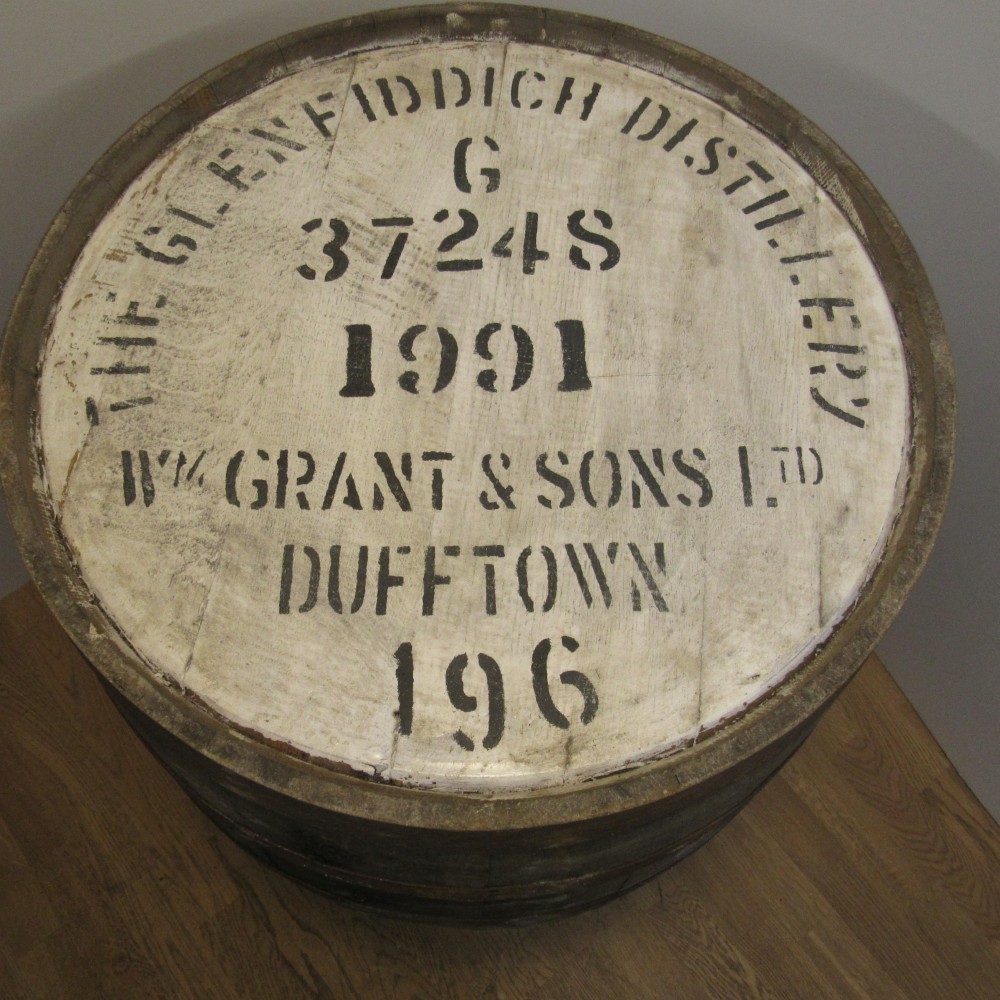 THE GLENFIDDICH DISTILLERY
G
37248
1991
WM GRANT & SONS LTD
DUFFTOWN
196